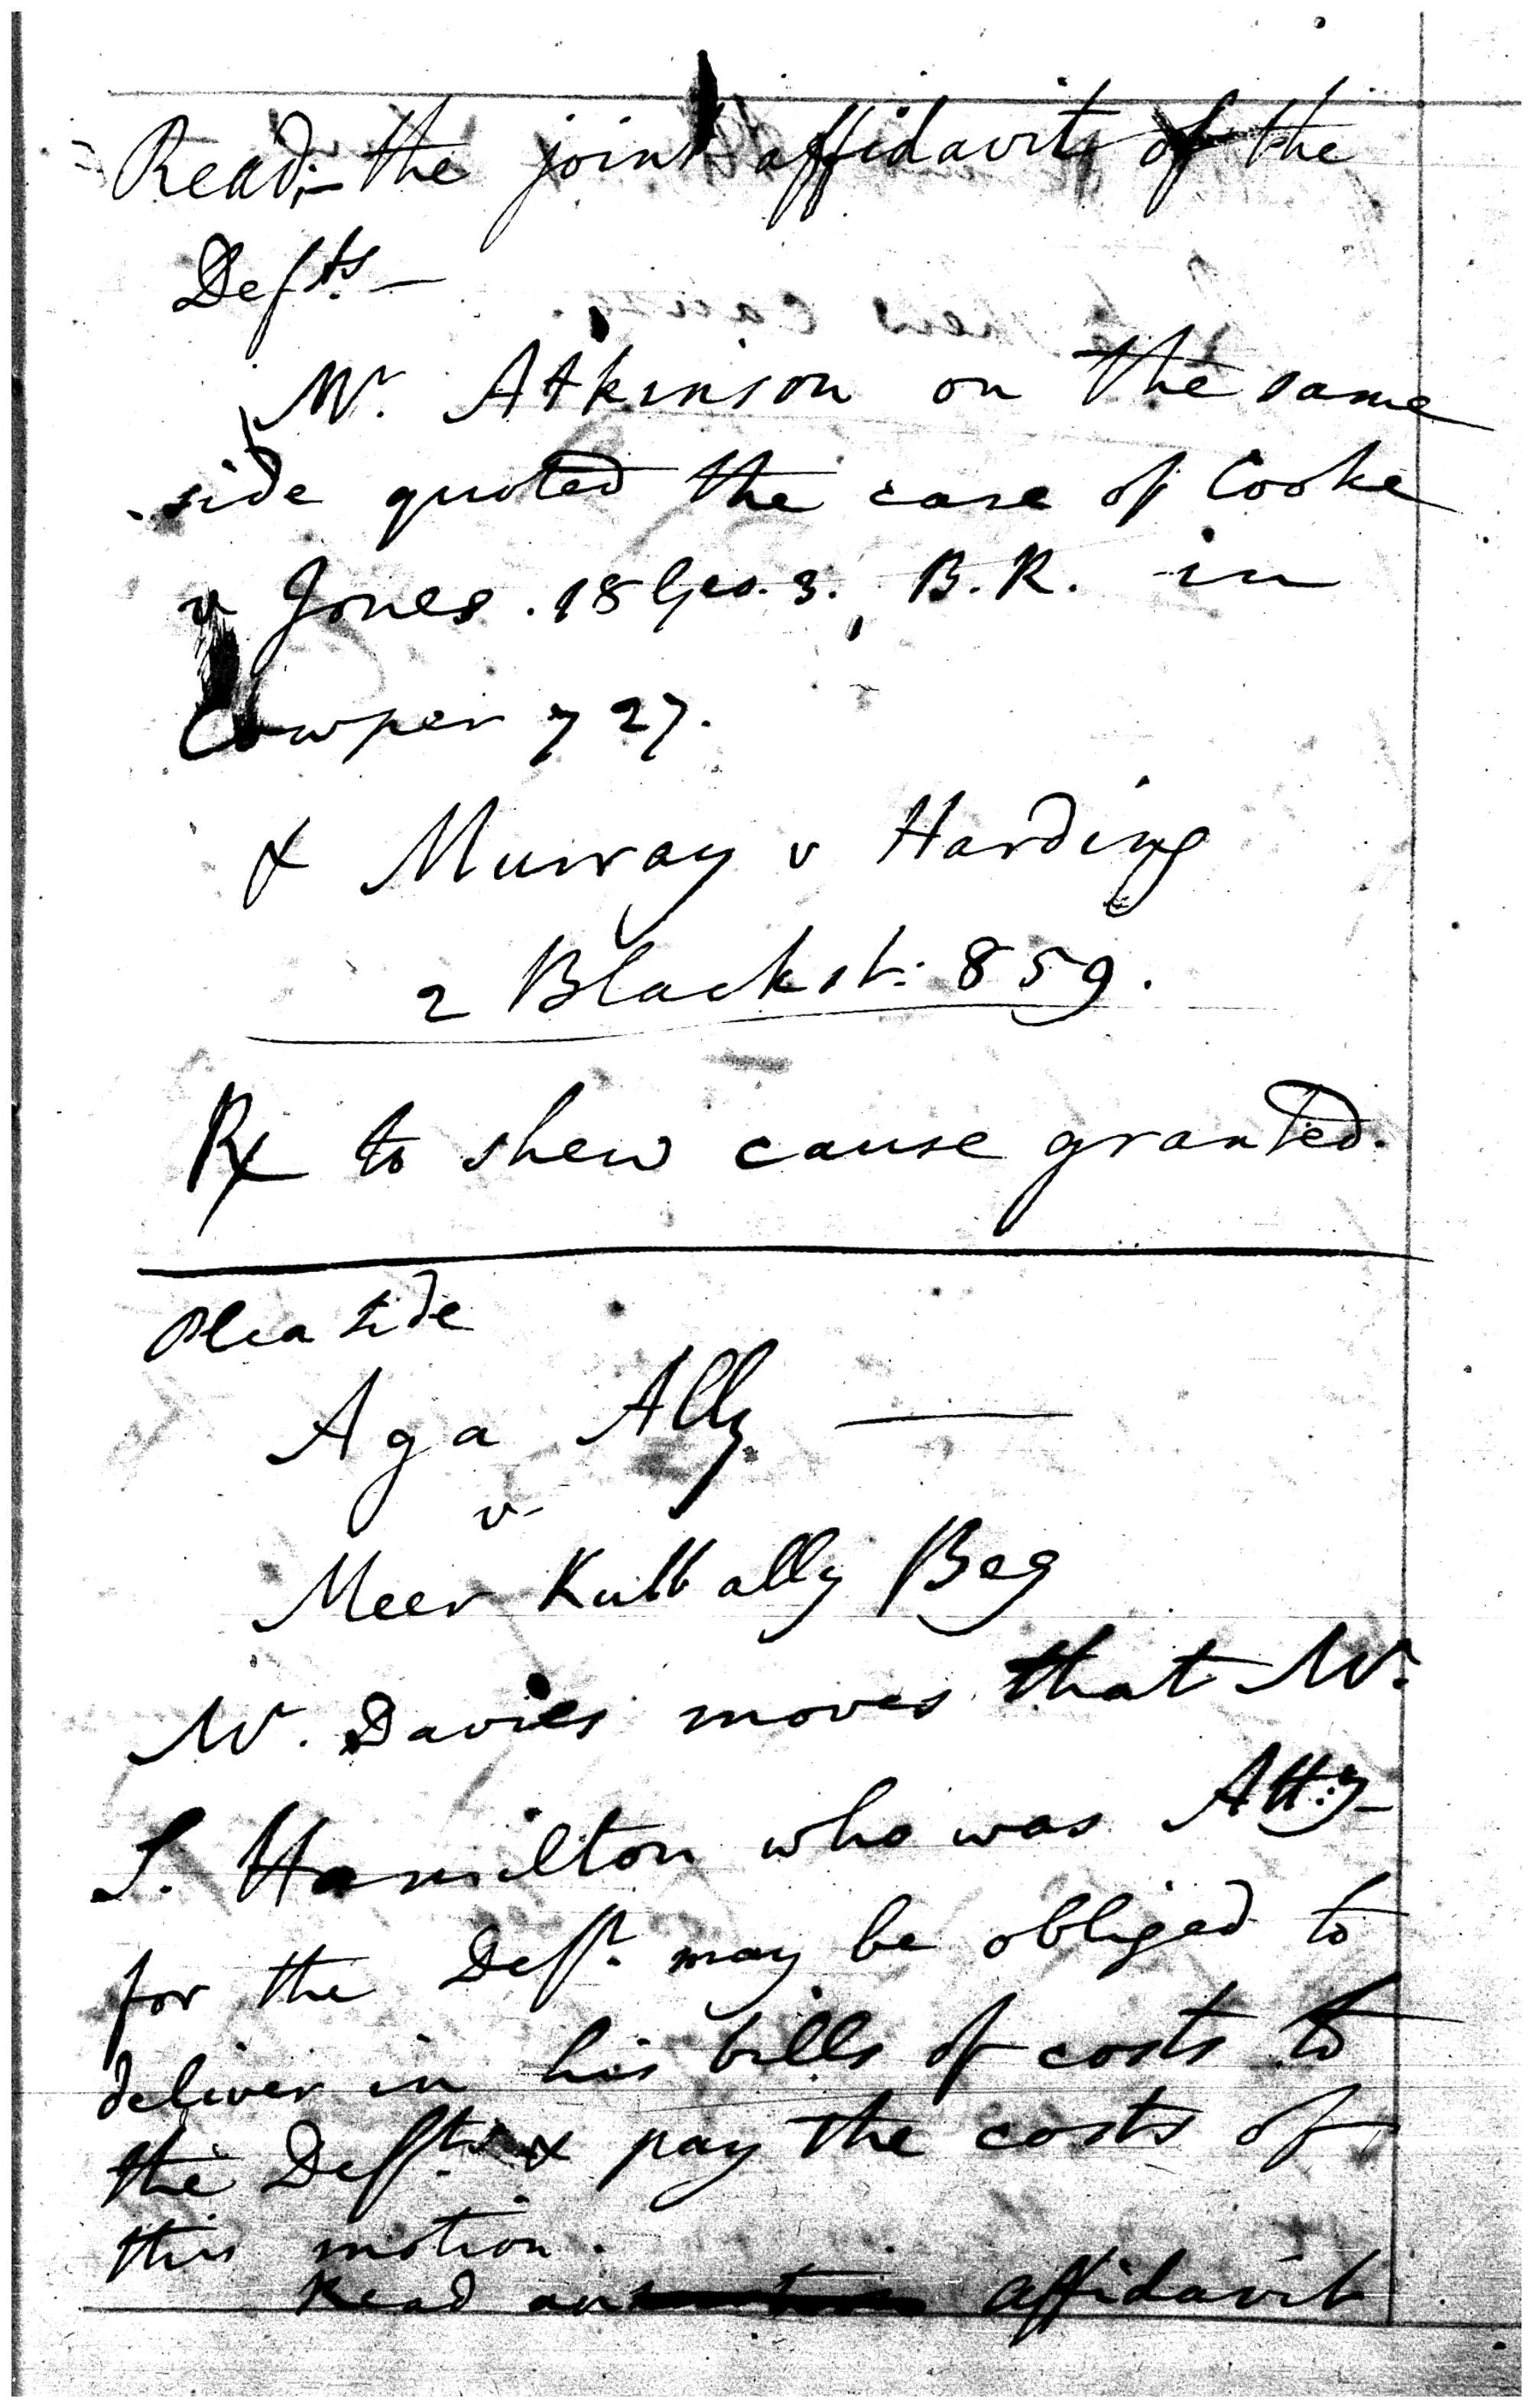 Read;– the joint affidavits of the
Defts. –
Mr. Atkinson on the same
side quoted the case of Cooke
v Jones . 18 Geo. 3. B.R. in
Cowper 727.
& Murray v Harding
2 Blackst: 859.
Rx to shew cause granted.
Plea Side
Aga Ally —
v-
Meer Kulb ally Beg
Mr. Davies moves that Mr.
S. Hamilton who was Att:y
for the Deft. may be obliged to
deliver in his bills of costs to
the Defts. & pay the costs of
this motion.
Read an affidavit